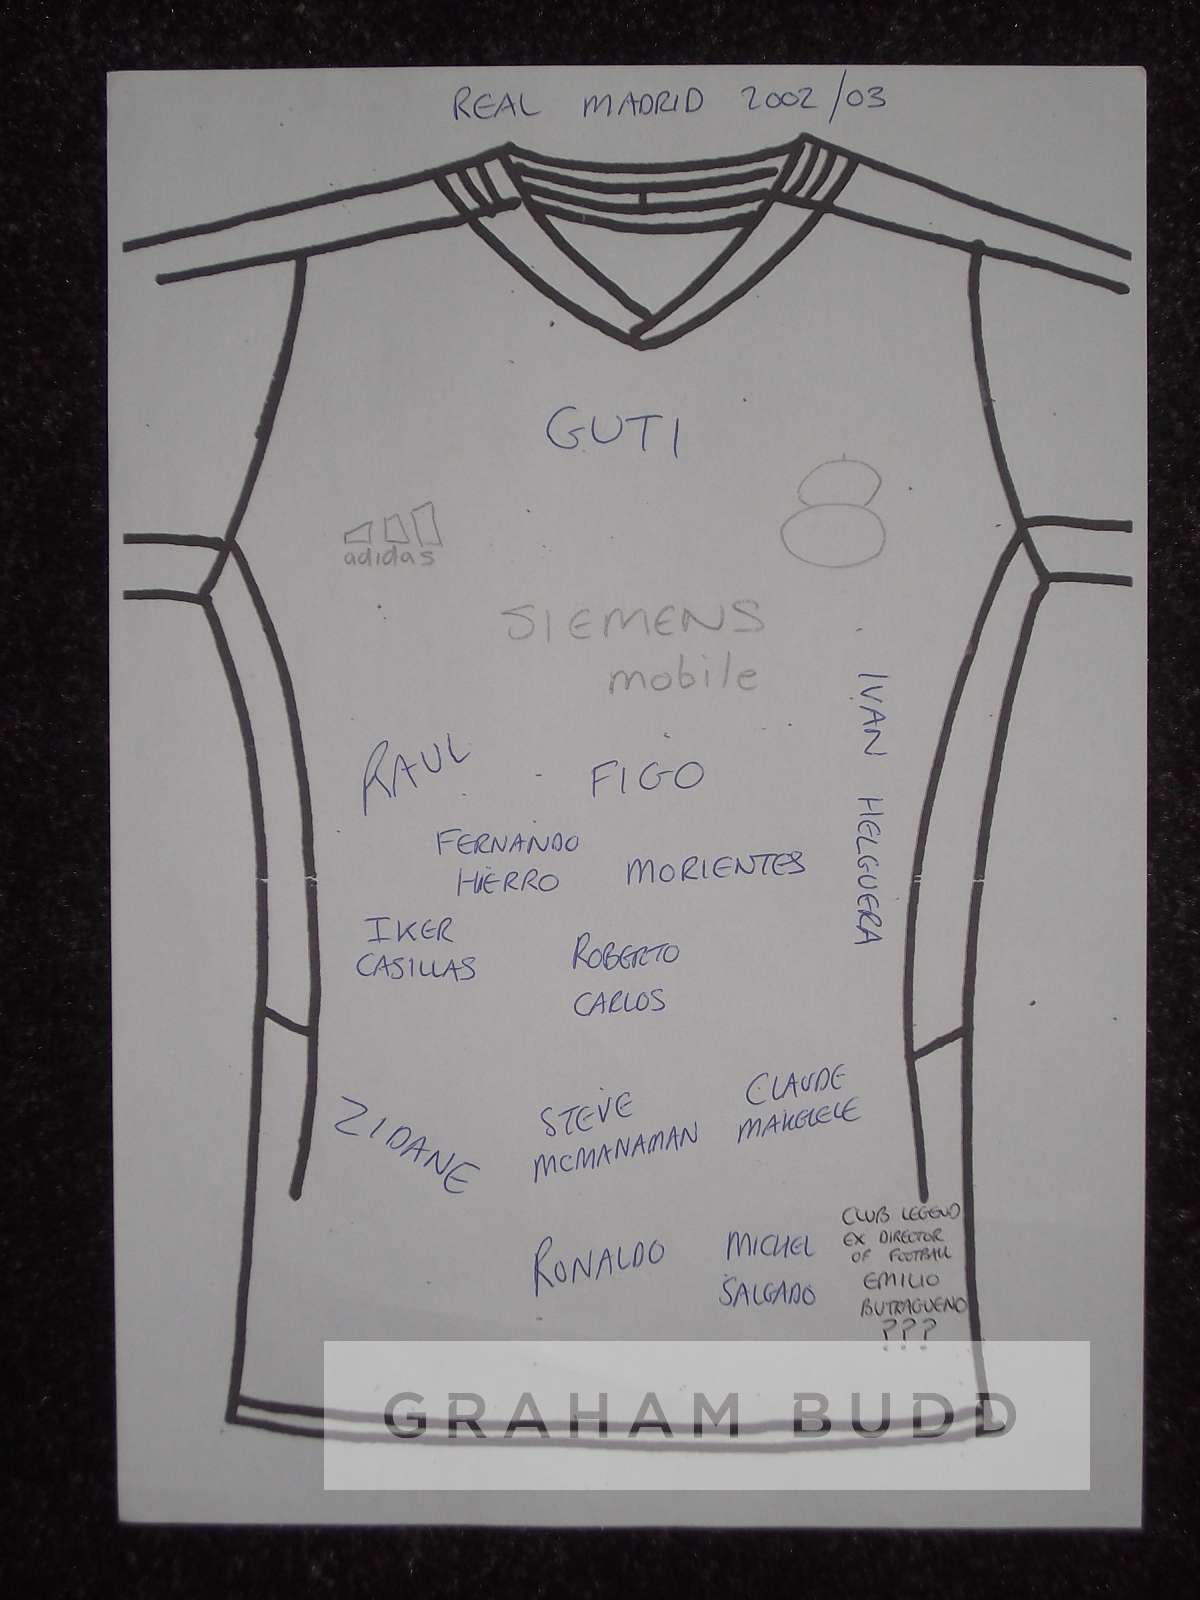 REAL MADRID 2002/03
GUTI
adidas
SIEMENS
mobile
IVAN HELGUERA
RAUL
FIGO
FERNANDO
HIERRO
MORIENTES
IKER
CASILLAS
ROBERTO
CARLOS
ZIDANE
STEVE
MCMANAMAN
CLAUDE
MAKELELE
RONALDO
MICHEL
SALGADO
CLUB LEGEND
EX DIRECTOR
OF FOOTBALL
EMILIO
BUTRAGUENO
???
GRAHAM BUDD